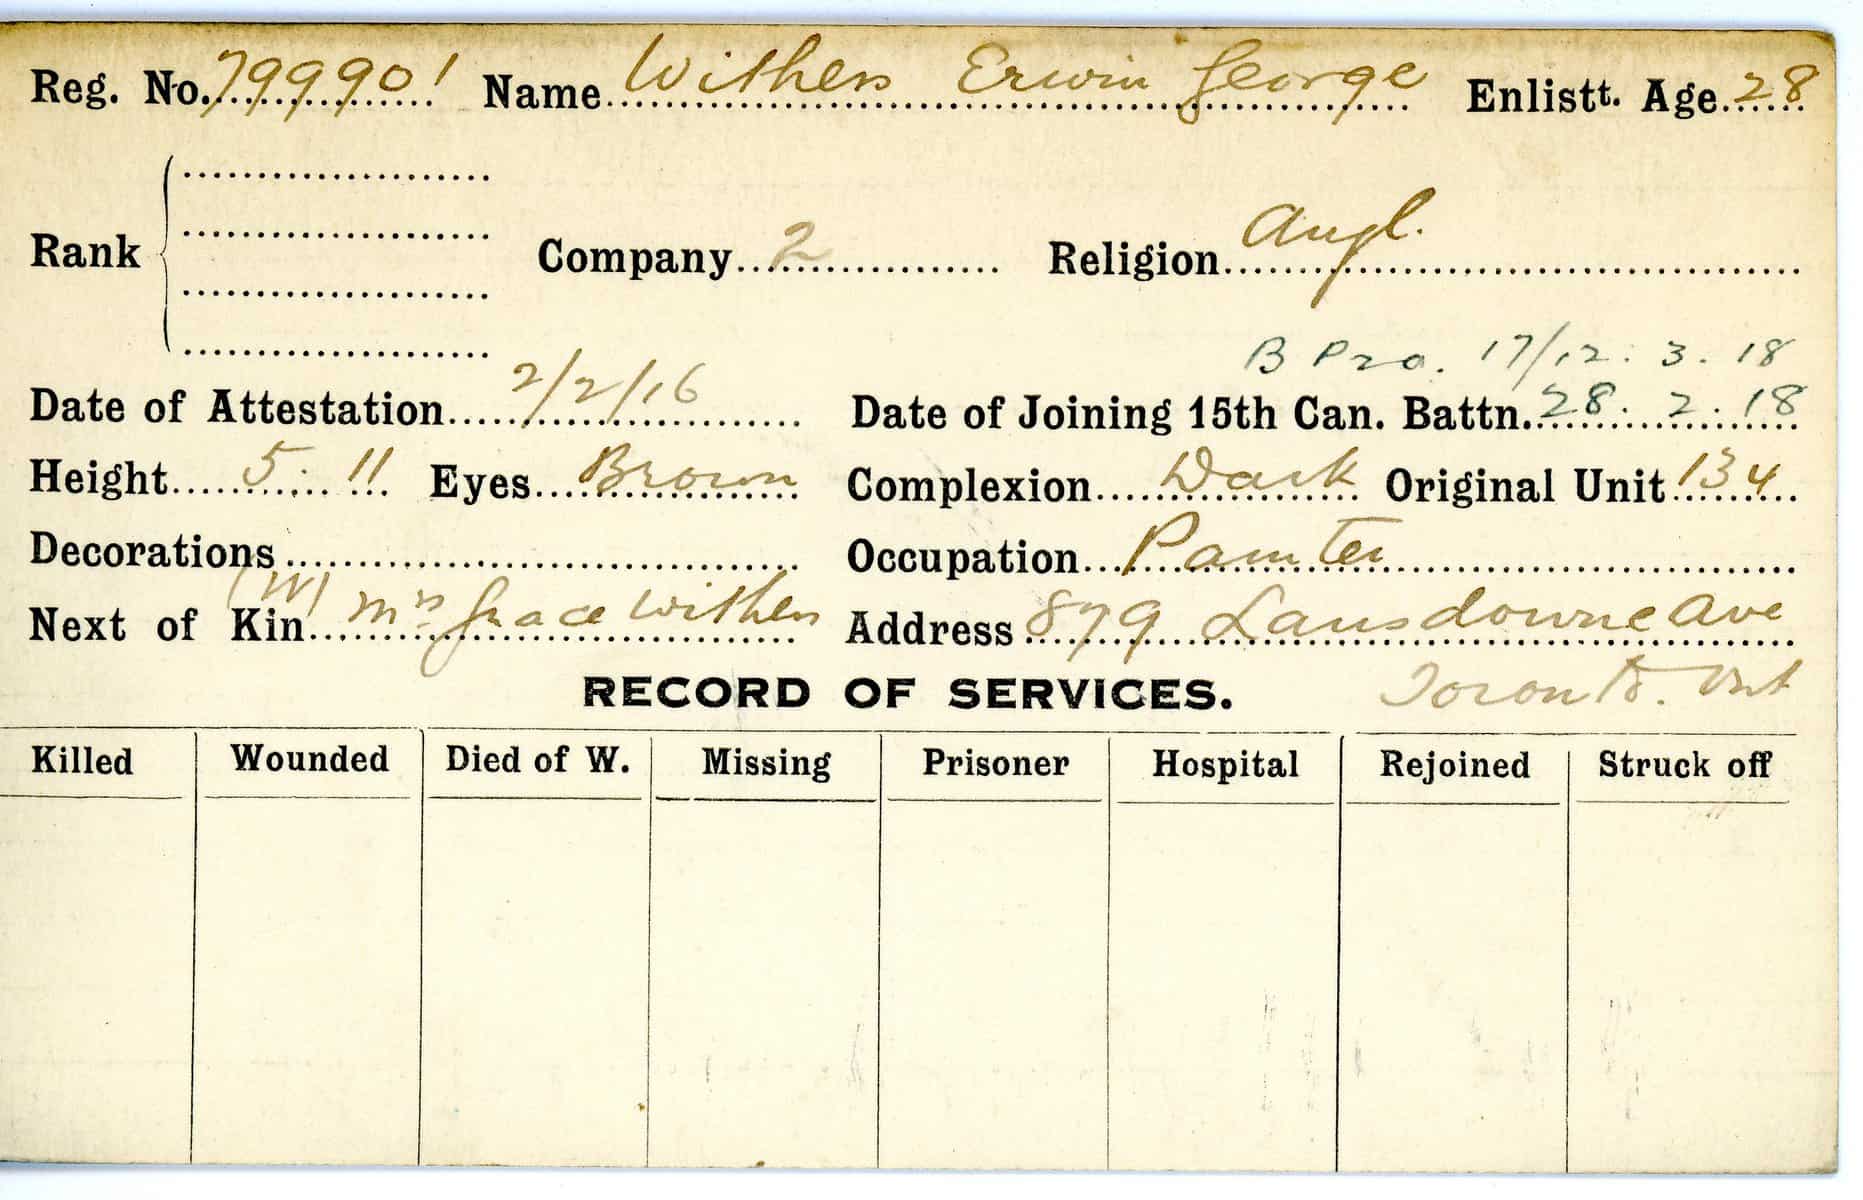 Reg. No. 799901 Name Withers Erwin George Enlistt. Age 28
Rank Company 2 Religion Angl.
B Pro. 17/12. 3. 18
Date of Attestation 2/2/16 Date of Joining 15th Can. Battn. 28. 2. 18
Height 5. 11 Eyes Brown Complexion Dark Original Unit 134
Decorations Occupation Painter
(W)
Next of Kin Mrs Grace Withers Address 879 Lansdowne Ave
RECORD OF SERVICES. Toronto. Ont
Killed Wounded Died of W. Missing Prisoner Hospital Rejoined Struck off